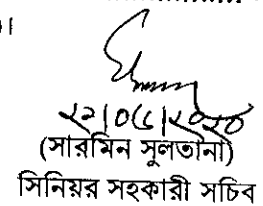 ২২।০৫।২০২০
(সারমিন সুলতানা)
সিনিয়র সহকারী সচিব